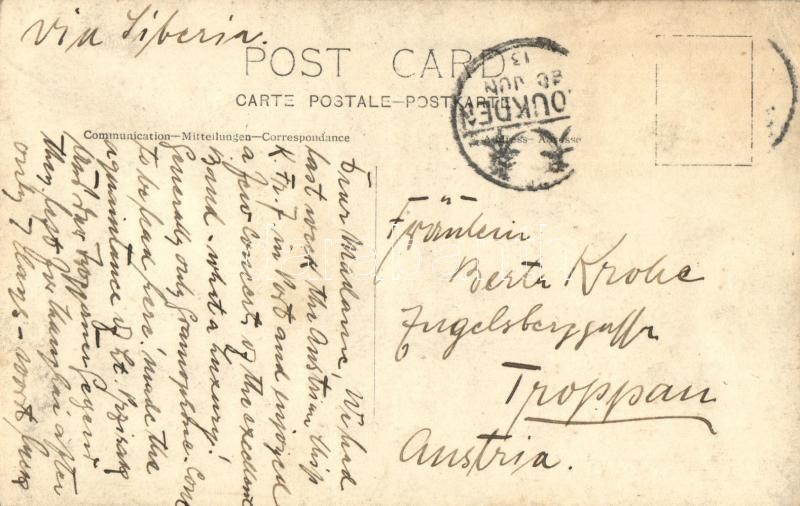 Via Siberia.
POST CARD
CARTE POSTALE—POSTKARTE
Communication—Mitteilungen—Correspondance
Address—Adresse
MOUKDEN
20 JUN
13
Dear Madame, We had
last week the Austrian ship
K. Fr. J. in Port and enjoyed
a few concerts of the excellent
Band - what a luxury!
Generally only Gramophone. Conc
to be had here. Made the
aquaintance of Lt.
Troppauer Gegend
they left for Shanghai after
only 7 days -
Fräulein
Berta Krohe
Engelsberggasse
Troppau
Austria.